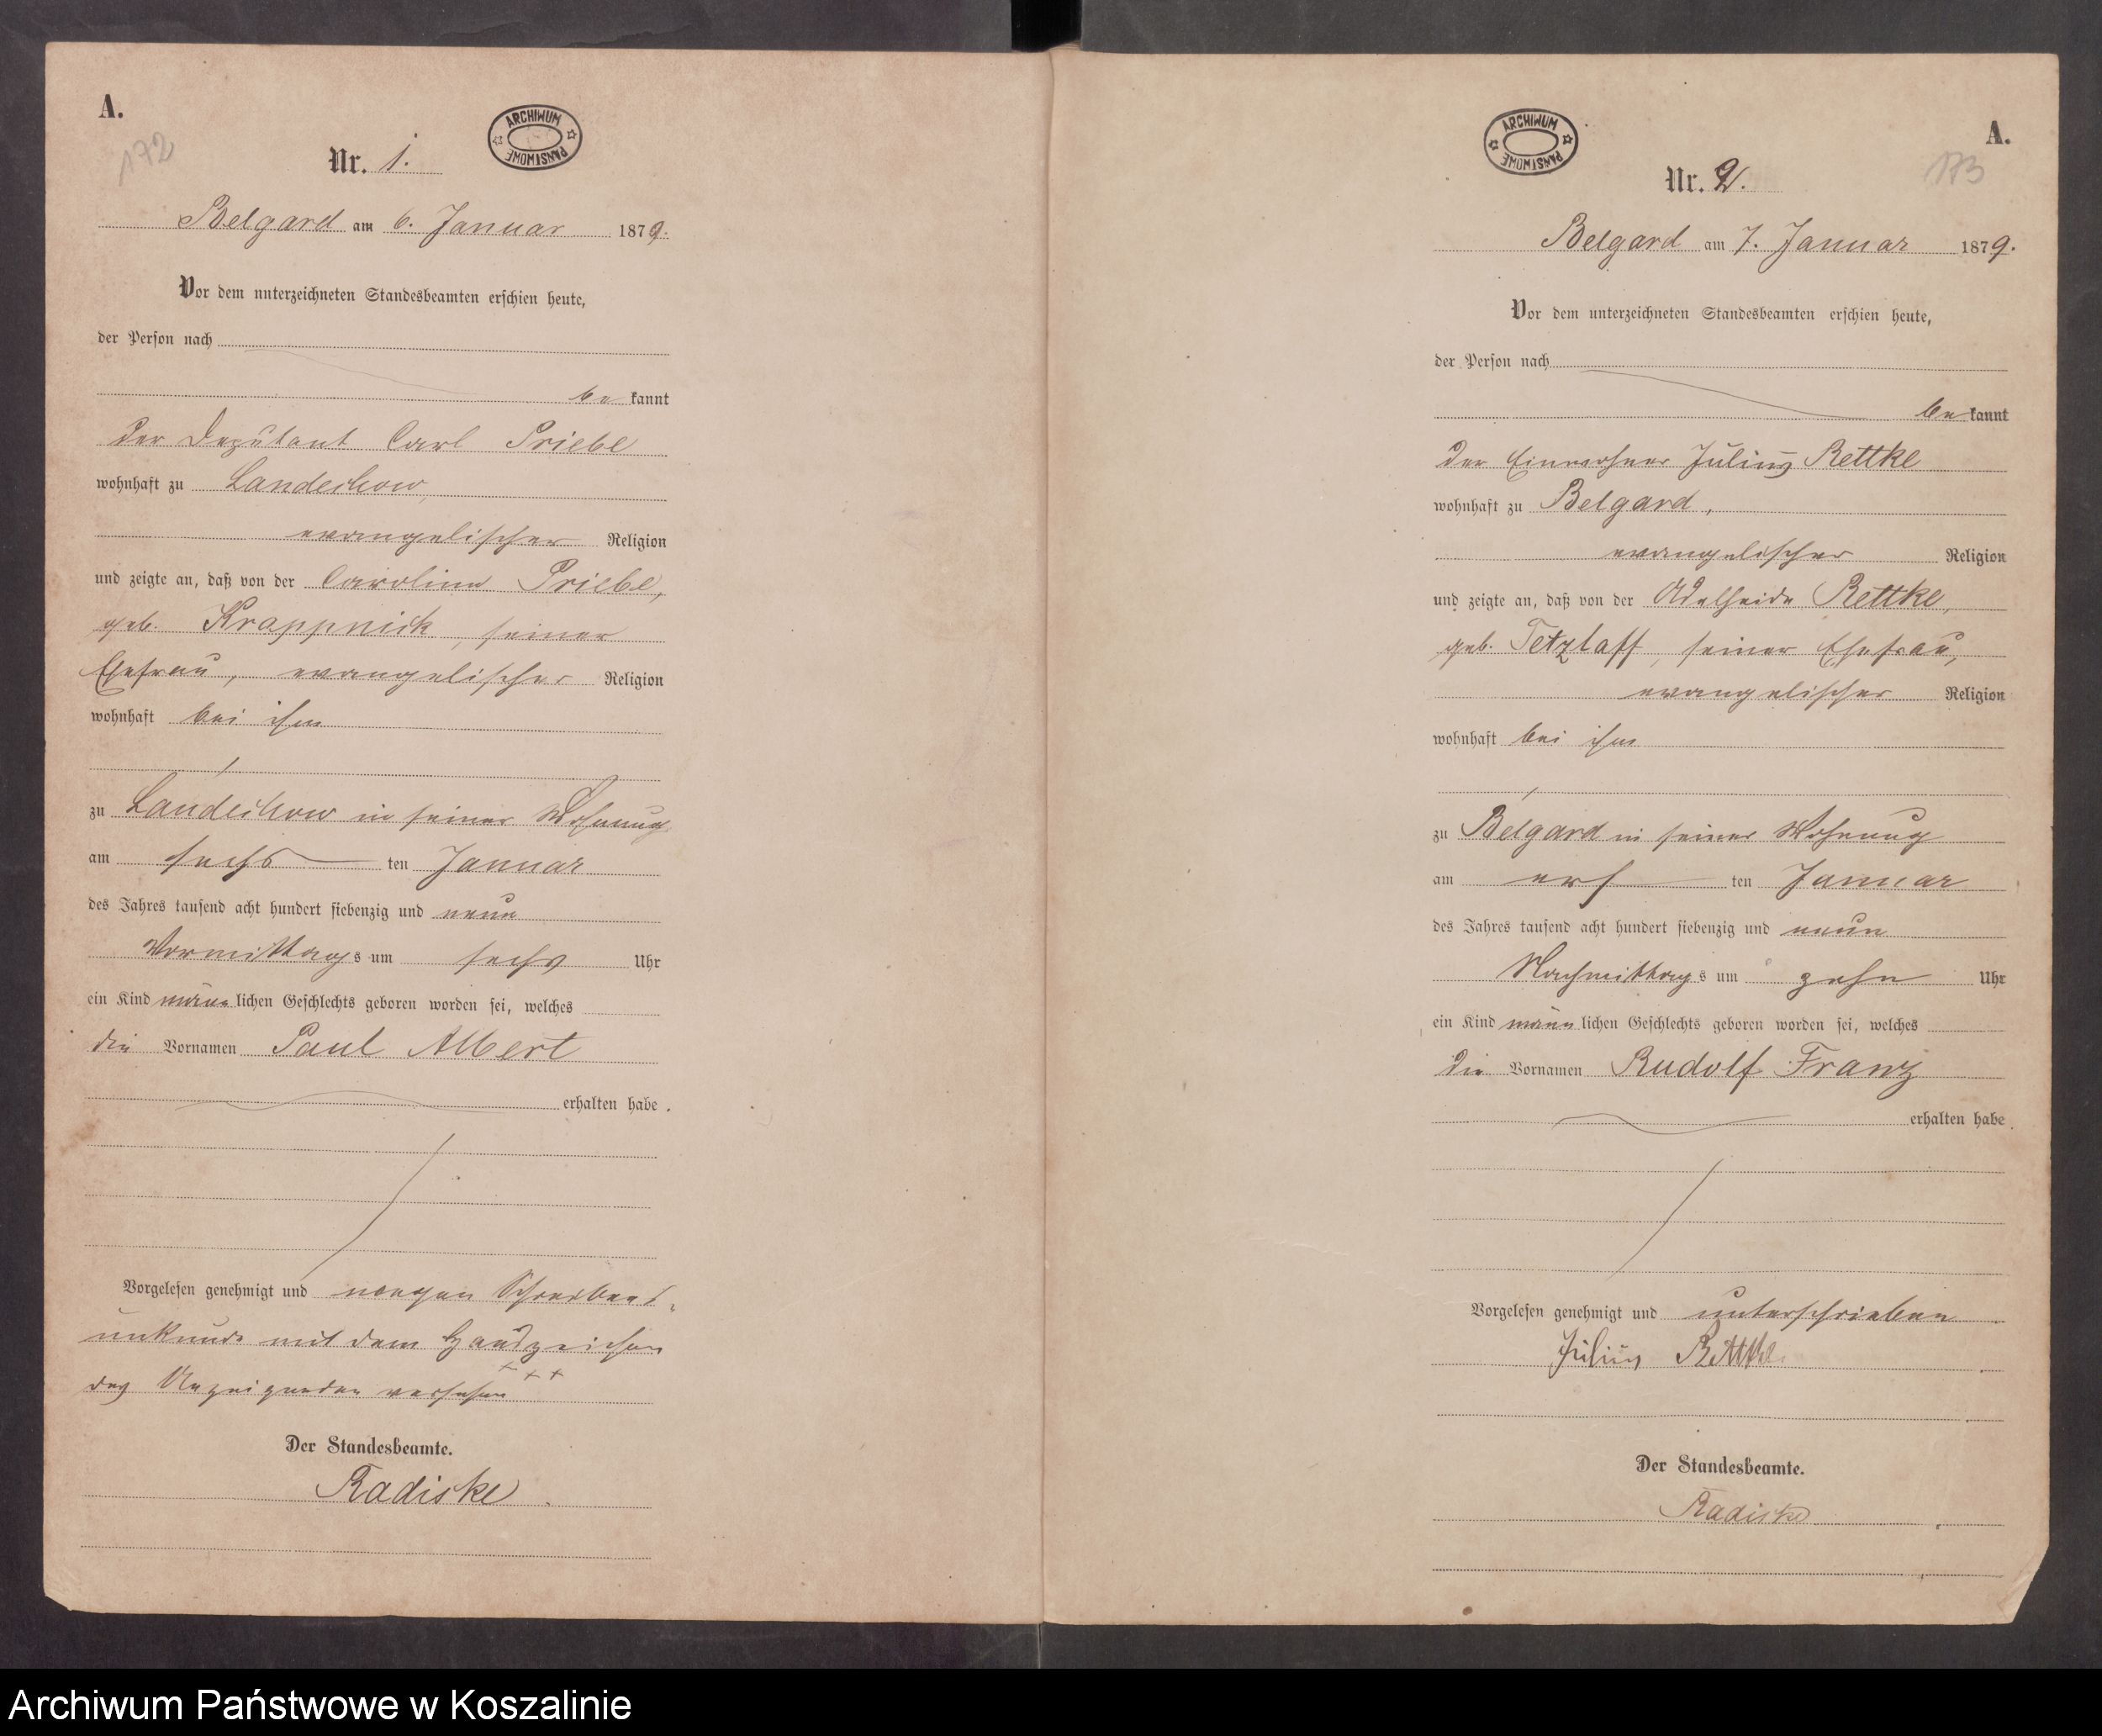 A.
172
Nr. 1.
ARCHIWUM PAŃSTWOWE
Belgard am 6. Januar 1879.
Vor dem unterzeichneten Standesbeamten erschien heute,
der Person nach
be kannt
der Deputant Carl Priebe
wohnhaft zu Landechow,
evangelischer Religion
und zeigte an, daß von der Caroline Priebe,
geb. Krappnick, seiner
Ehefrau, evangelischer Religion
wohnhaft bei ihm
zu Landechow in seiner Wohnung
am sechs ten Januar
des Jahres tausend acht hundert siebenzig und neun
Vormittags um sechs Uhr
ein Kind männlichen Geschlechts geboren worden sei, welches
die Vornamen Paul Albert
erhalten habe.
Vorgelesen genehmigt und wegen Schreibens-
unkunde mit dem Handzeichen
des Anzeigenden versehen +++
Der Standesbeamte.
Radiske
A.
173
Nr. 2.
ARCHIWUM PAŃSTWOWE
Belgard am 7. Januar 1879.
Vor dem unterzeichneten Standesbeamten erschien heute,
der Person nach
be kannt
der Einwohner Julius Rettke
wohnhaft zu Belgard,
evangelischer Religion
und zeigte an, daß von der Adelheide Rettke,
geb. Tetzlaff, seiner Ehefrau,
evangelischer Religion
wohnhaft bei ihm
zu Belgard in seiner Wohnung
am ers ten Januar
des Jahres tausend acht hundert siebenzig und neun
Nachmittags um zehn Uhr
ein Kind männlichen Geschlechts geboren worden sei, welches
die Vornamen Rudolf Franz
erhalten habe.
Vorgelesen genehmigt und unterschrieben
Julius Rettke
Der Standesbeamte.
Radiske
Archiwum Państwowe w Koszalinie